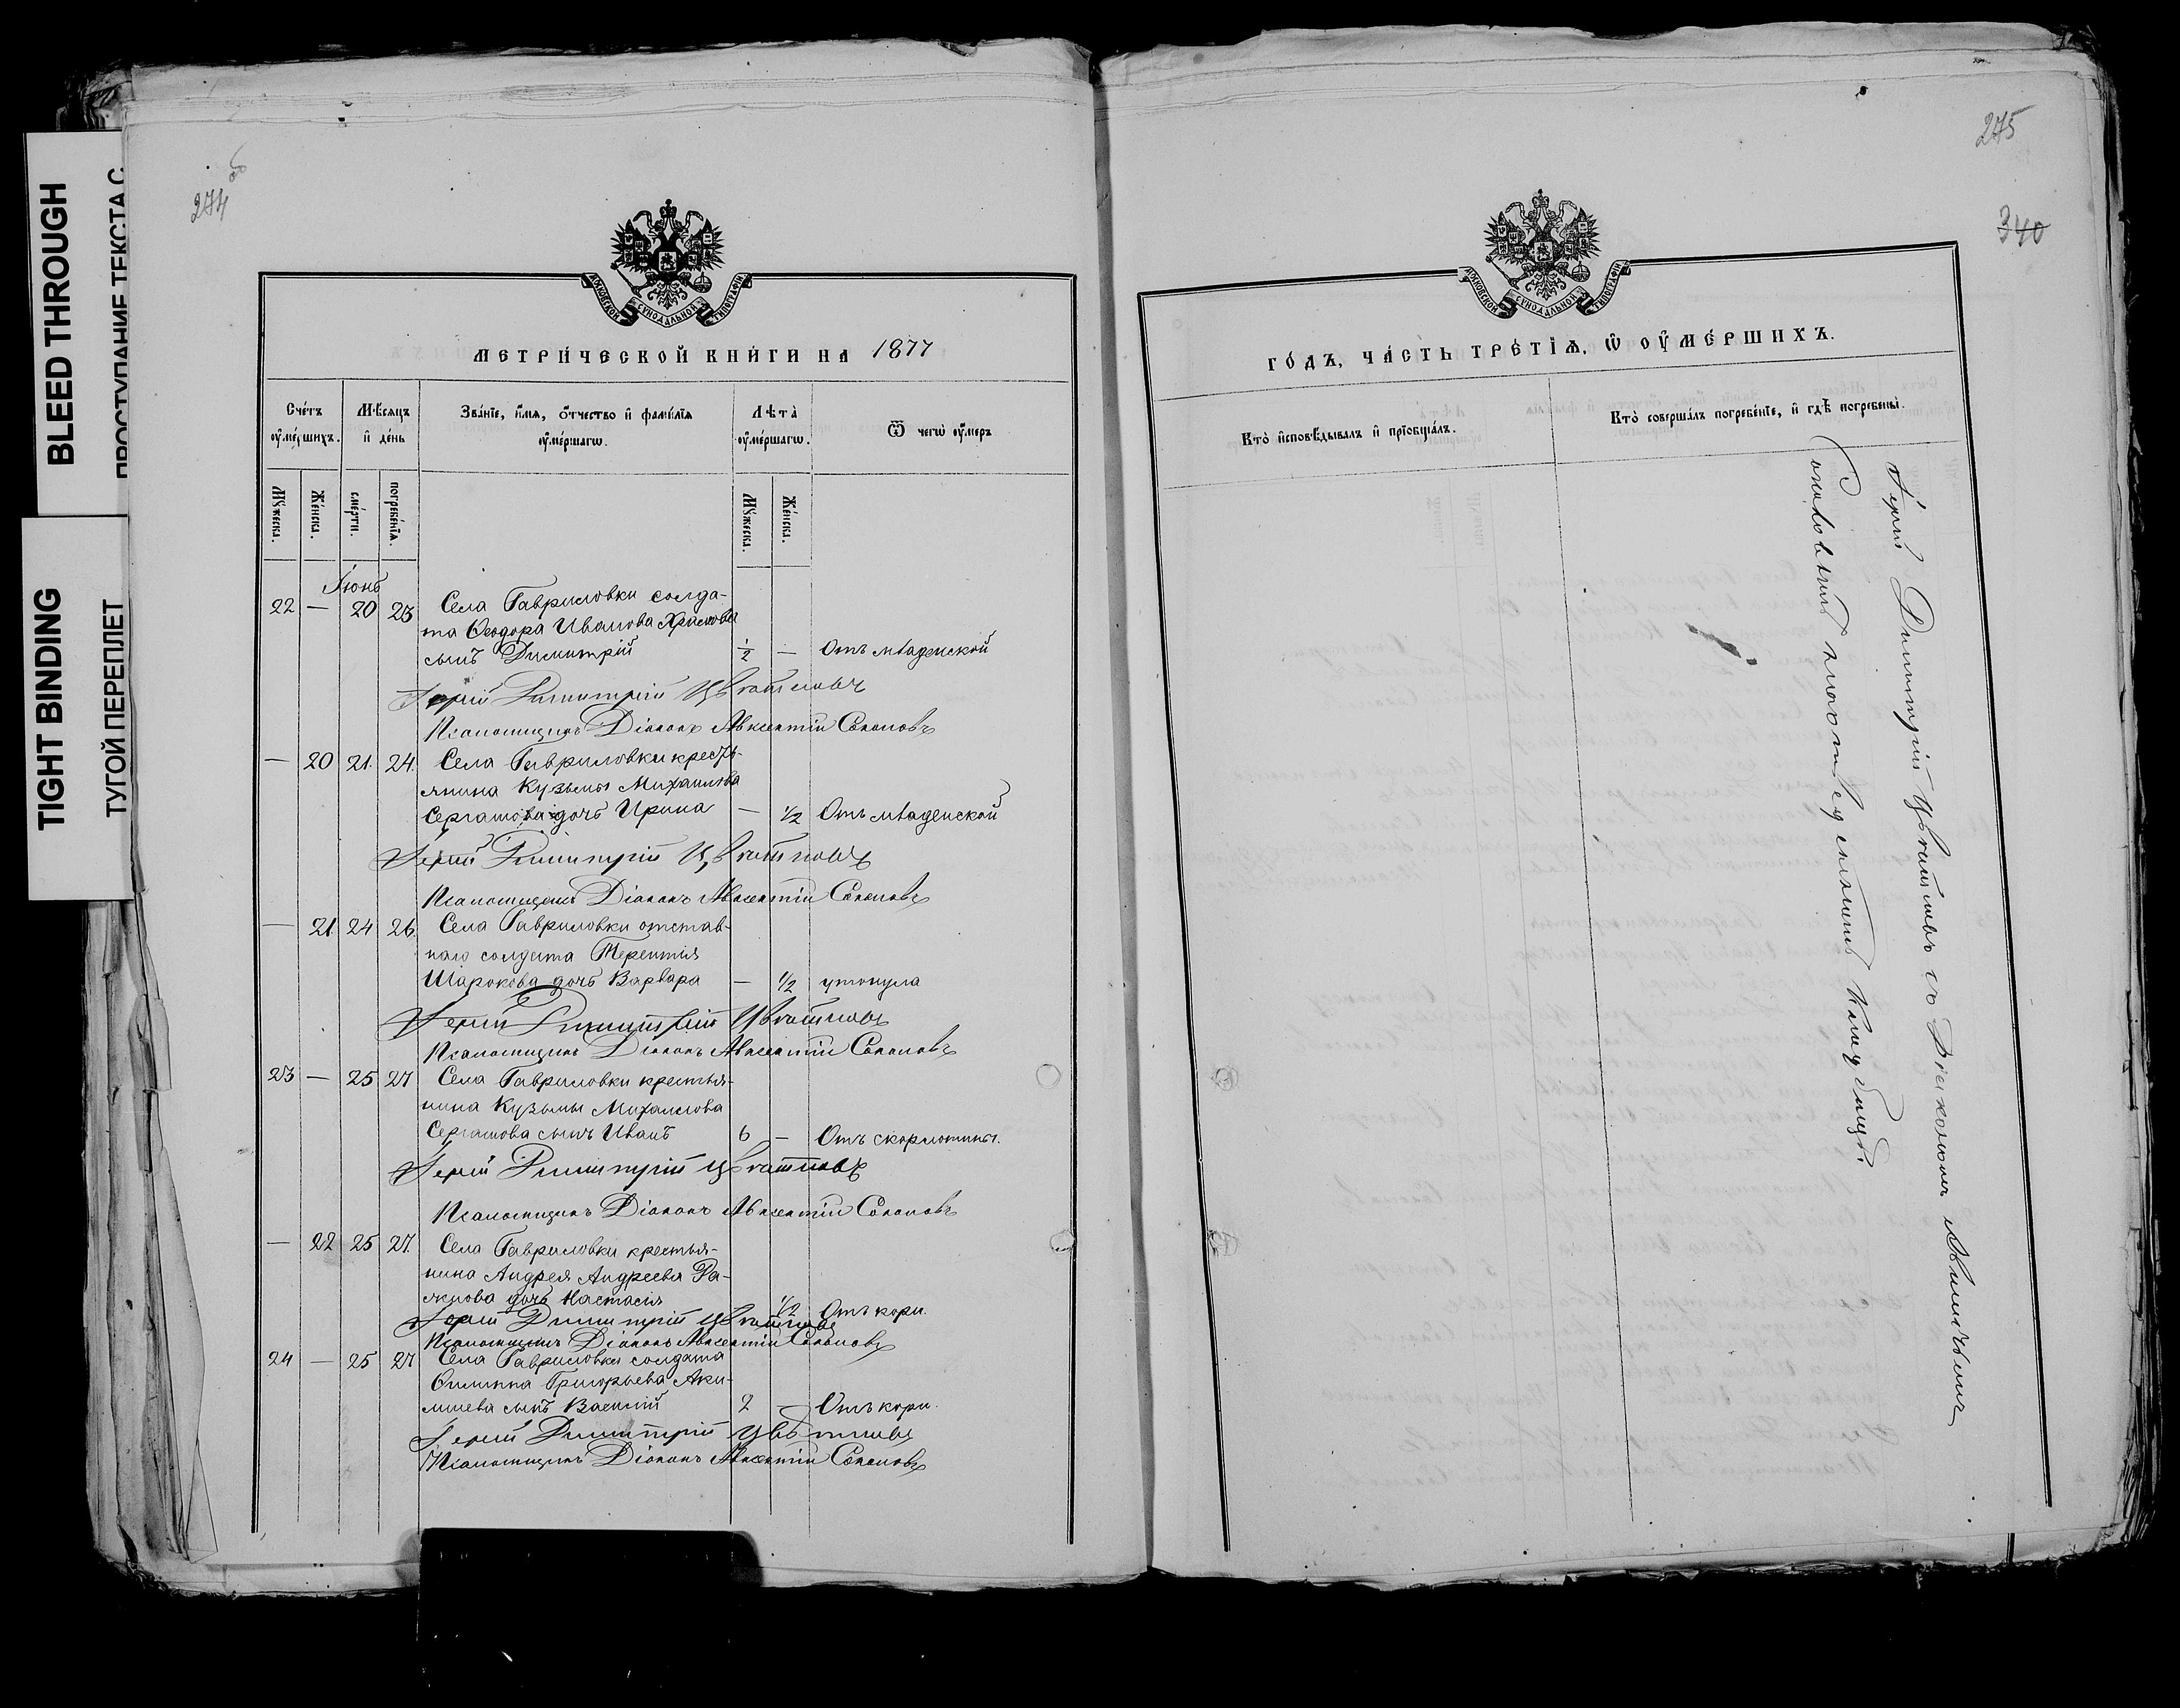 BLEED THROUGH
ПРОСТУПАНИЕ ТЕКСТА С
TIGHT BINDING
ТУГОЙ ПЕРЕПЛЕТ
274 об
МОСКОВСКОЙ СѴНОДАЛЬНОЙ ТИПОГРАФІИ
МЕТРИ́ЧЕСКОЙ КНИ́ГИ НА 1877
Сче́тъ ᲂу҆ме́ршихъ.
Мѣ́сяцъ и҆ де́нь
Зва́нїе, и҆́мѧ, ѻ҆́тчество и҆ фами́лїѧ ᲂу҆ме́ршагѡ.
Лѣ̑та̀ ᲂу҆ме́ршагѡ.
Ѿ чегѡ̀ ᲂу҆́меръ
Мꙋ́жеска.
Же́нска.
сме́рти.
погребе́нїѧ.
Мꙋ́жеска.
Же́нска.
Іюнь
22 — 20 23 Села Гавриловки солда-
та Ѳеодора Иванова
сынъ Димитрій 1/2 — Отъ младенской
Іерей Димитрій Цвѣтковъ
Псаломщикъ Діаконъ Авксентій Соколовъ
— 20 21. 24. Села Гавриловки кресть-
янина Кузьмы Михаилова
дочь Ирина — 1/2 Отъ младенской
Іерей Димитрій Цвѣтковъ
Псаломщикъ Діаконъ Авксентій Соколовъ
— 21 24 26. Села Гавриловки отстав-
наго солдата Терентія
Шарокова дочь Варвара — 1/2 утонула
Іерей Димитрій Цвѣтковъ
Псаломщикъ Діаконъ Авксентій Соколовъ
23 — 25 27 Села Гавриловки крестья-
нина Кузьмы Михаилова
сынъ Иванъ 6 — Отъ скорлотины.
Іерей Димитрій Цвѣтковъ
Псаломщикъ Діаконъ Авксентій Соколовъ
— 22 25 27. Села Гавриловки крестья-
нина Андрея Андреева
дочь Настасія 1/2 Отъ кори.
Іерей Димитрій Цвѣтковъ
Псаломщикъ Діаконъ Авксентій Соколовъ
24 — 25 27 Села Гавриловки солдата
Филиппа Григорьева Аки-
мшева сынъ Василій 2 — Отъ кори.
Іерей Димитрій Цвѣтковъ
Псаломщикъ Діаконъ Авксентій Соколовъ
275
340
МОСКОВСКОЙ СѴНОДАЛЬНОЙ ТИПОГРАФІИ
ГО́ДЪ, ЧА́СТЬ ТРЕ́ТЇѦ, Ѡ҆ ОУ҆МЕ́РШИХЪ.
Кто̀ и҆сповѣ́дывалъ и҆ прїѡбща́лъ.
Кто̀ соверша́лъ погребе́нїе, и҆ гдѣ̀ погребены̀.
Іерей Димитрій Цвѣтковъ съ Діакономъ
Соколовымъ на приходскомъ кладбищѣ.